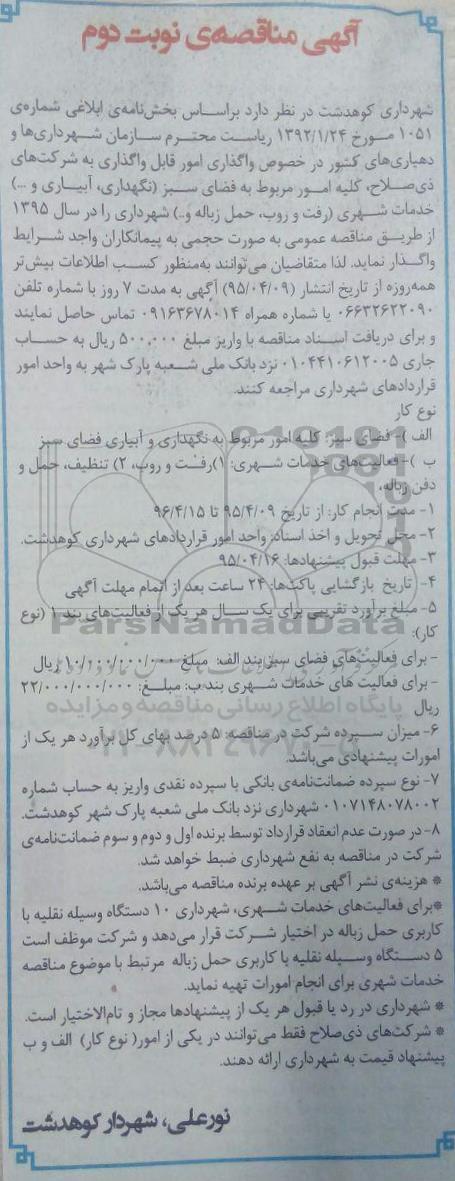 آگهی مناقصه‌ی نوبت دوم
شهرداری کوهدشت در نظر دارد براساس بخش‌نامه‌ی ابلاغی شماره‌ی
۱۰۵۱ مورخ ۱۳۹۲/۱/۲۴ ریاست محترم سازمان شهرداری‌ها و
دهیاری‌های کشور در خصوص واگذاری امور قابل واگذاری به شرکت‌های
ذی‌صلاح، کلیه امور مربوط به فضای سبز (نگهداری، آبیاری و ...)
خدمات شهری (رفت و روب، حمل زباله و..) شهرداری را در سال ۱۳۹۵
از طریق مناقصه عمومی به صورت حجمی به پیمانکاران واجد شرایط
واگذار نماید. لذا متقاضیان می‌توانند به‌منظور کسب اطلاعات بیش‌تر
همه‌روزه از تاریخ انتشار (۹۵/۰۴/۰۹) آگهی به مدت ۷ روز با شماره تلفن
۰۶۶۳۲۶۲۲۰۹۰ یا شماره همراه ۰۹۱۶۳۶۷۸۰۱۴ تماس حاصل نمایند
و برای دریافت اسناد مناقصه با واریز مبلغ ۵۰۰,۰۰۰ ریال به حساب
جاری ۰۱۰۴۴۱۰۶۱۲۰۰۵ نزد بانک ملی شعبه پارک شهر به واحد امور
قراردادهای شهرداری مراجعه کنند.
نوع کار
الف )- فضای سبز: کلیه امور مربوط به نگهداری و آبیاری فضای سبز
ب )- فعالیت‌های خدمات شهری: ۱)رفت و روب، ۲) تنظیف، حمل و
دفن زباله.
۱- مدت انجام کار: از تاریخ ۹۵/۴/۰۹ تا ۹۶/۴/۱۵
۲- محل تحویل و اخذ اسناد: واحد امور قراردادهای شهرداری کوهدشت.
۳- مهلت قبول پیشنهادها: ۹۵/۰۴/۱۶
۴- تاریخ بازگشایی پاکت‌ها: ۲۴ ساعت بعد از اتمام مهلت آگهی
۵- مبلغ برآورد تقریبی برای یک سال هر یک از فعالیت‌های بند ۱ (نوع
کار):
ParsNamadData
- برای فعالیت‌های فضای سبز بند الف: مبلغ ۱۰/۰۰۰/۰۰۰/۰۰۰ ریال
- برای فعالیت های خدمات شهری بند ب: مبلغ: ۲۲/۰۰۰/۰۰۰/۰۰۰
ریال
پایگاه اطلاع رسانی مناقصه و مزایده
۶- میزان سپرده شرکت در مناقصه: ۵ درصد بهای کل برآورد هر یک از
امورات پیشنهادی می‌باشد.
۷- نوع سپرده ضمانت‌نامه‌ی بانکی یا سپرده نقدی واریز به حساب شماره
۰۱۰۷۱۴۸۰۷۸۰۰۲ شهرداری نزد بانک ملی شعبه پارک شهر کوهدشت.
۸- در صورت عدم انعقاد قرارداد توسط برنده اول و دوم و سوم ضمانت‌نامه‌ی
شرکت در مناقصه به نفع شهرداری ضبط خواهد شد.
* هزینه‌ی نشر آگهی بر عهده برنده مناقصه می‌باشد.
*برای فعالیت‌های خدمات شهری، شهرداری ۱۰ دستگاه وسیله نقلیه با
کاربری حمل زباله در اختیار شرکت قرار می‌دهد و شرکت موظف است
۵ دستگاه وسیله نقلیه با کاربری حمل زباله مرتبط با موضوع مناقصه
خدمات شهری برای انجام امورات تهیه نماید.
* شهرداری در رد یا قبول هر یک از پیشنهادها مجاز و تام‌الاختیار است.
* شرکت‌های ذی‌صلاح فقط می‌توانند در یکی از امور( نوع کار) الف و ب
پیشنهاد قیمت به شهرداری ارائه دهند.
نورعلی، شهردار کوهدشت